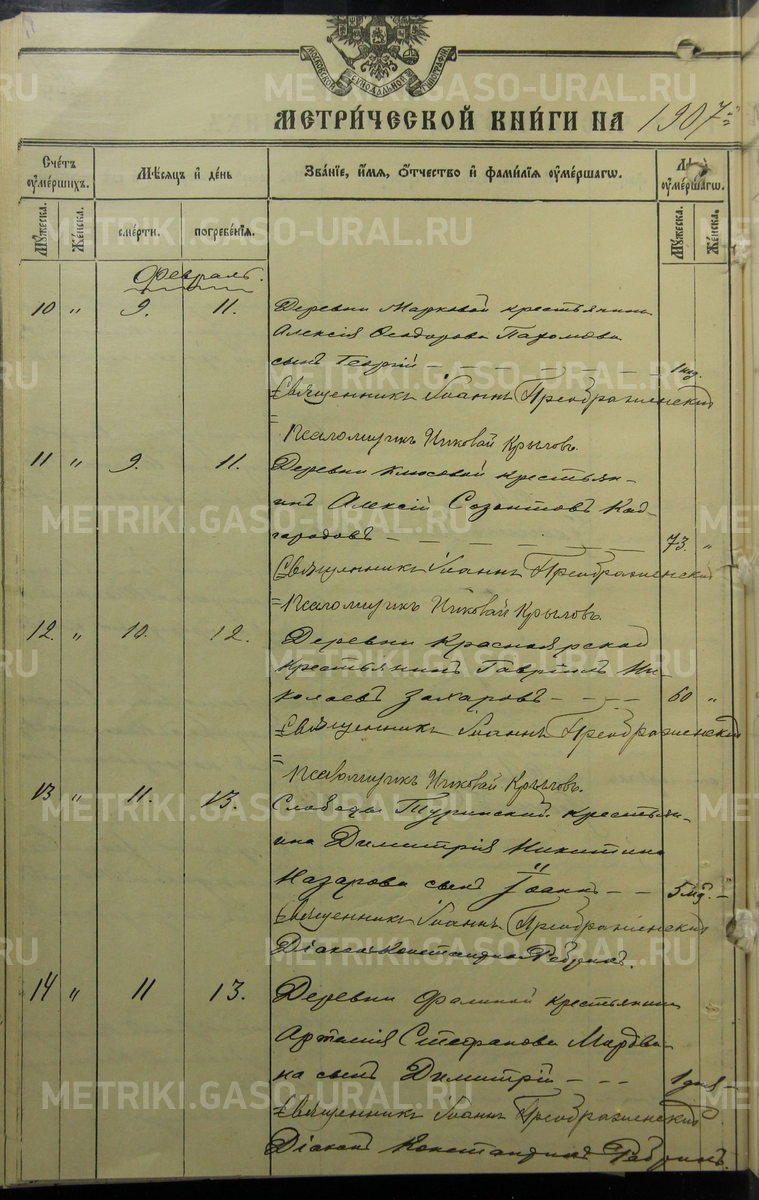 МОСКОВСКОЙ СУНОДАЛЬНОЙ ТИПОГРАФІИ
МЕТРИ́ЧЕСКОЙ КНИ́ГИ НА 1907
Сче́тъ ᲂу҆ме́ршихъ.
Мѣ́сяцъ и҆ де́нь
Зва́нїе, и҆́мя, ѻ҆́тчество и҆ фами́лїя ᲂу҆ме́ршагѡ.
Лѣ ᲂу҆ме́ршагѡ.
Му́жеска.
Же́нска.
сме́рти.
погребе́нїя.
Му́жеска.
Же́нска.
Февраль.
10 " 9. 11. Деревни Марковой крестьянина
Алексія Ѳеодорова Пахомова
сынъ Георгій — 1 нед.
Священникъ Іоаннъ Преображенскій
= Псаломщикъ Николай Крыловъ.
11 " 9. 11. Деревни Ключевой крестьян-
инъ Алексій Созонтовъ Кай-
городовъ — 73. "
Священникъ Іоаннъ Преображенскій
= Псаломщикъ Николай Крыловъ.
12. " 10. 12. Деревни Красноярской
крестьянинъ Гавріилъ Ни-
колаевъ Захаровъ — 60 "
Священникъ Іоаннъ Преображенскій
= Псаломщикъ Николай Крыловъ.
13 " 11. 13. Слободы Туринской крестьян-
ина Димитрія Никитина
Назарова сынъ Іоаннъ — 5 мц. "
Священникъ Іоаннъ Преображенскій
Діаконъ Константинъ Ребринъ.
14 " 11 13. Деревни Фалиной крестьянина
Артемія Стефанова Мордви-
на сынъ Димитрій — 1 дня
Священникъ Іоаннъ Преображенскій
Діаконъ Константинъ Ребринъ.
METRIKI.GASO-URAL.RU